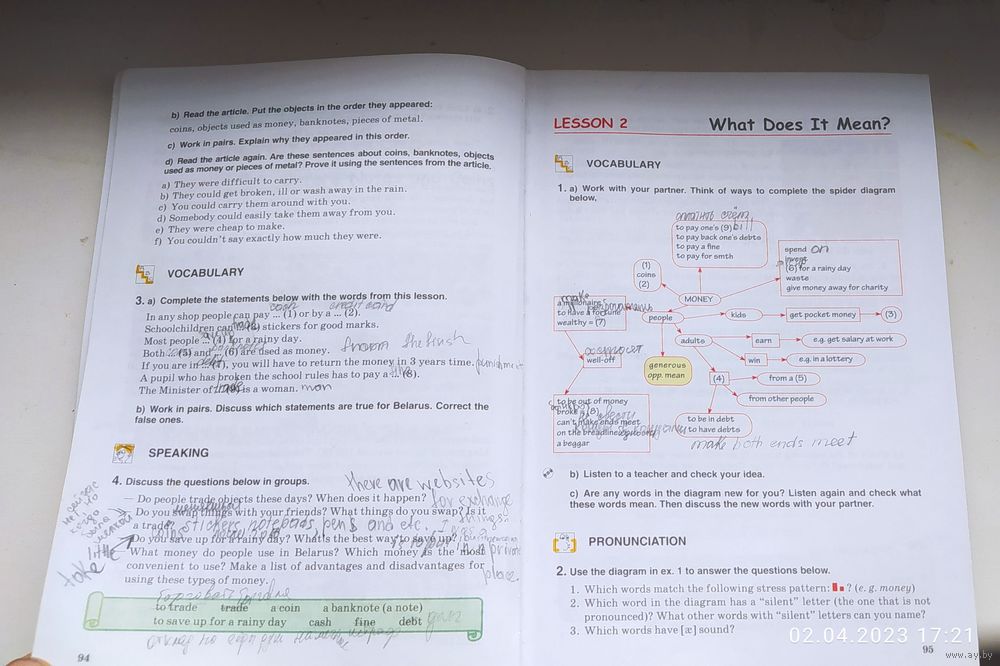 b) Read the article. Put the objects in the order they appeared:
coins, objects used as money, banknotes, pieces of metal.
c) Work in pairs. Explain why they appeared in this order.
d) Read the article again. Are these sentences about coins, banknotes, objects
used as money or pieces of metal? Prove it using the sentences from the article.
a) They were difficult to carry.
b) They could get broken, ill or wash away in the rain.
c) You could carry them around with you.
d) Somebody could easily take them away from you.
e) They were cheap to make.
f) You couldn't say exactly how much they were.
VOCABULARY
3. a) Complete the statements below with the words from this lesson.
coin credit card
In any shop people can pay ... (1) or by a ... (2).
Schoolchildren can ... stickers for good marks.
Most people ... (4) for a rainy day.
Both ... (5) and ... (6) are used as money.
If you are in ... (7), you will have to return the money in 3 years time.
A pupil who has broken the school rules has to pay a ... (8).
The Minister of is a woman. man
b) Work in pairs. Discuss which statements are true for Belarus. Correct the
false ones.
SPEAKING
4. Discuss the questions below in groups.
there are websites
— Do people trade objects these days? When does it happen? for exchange
— Do you swap things with your friends? What things do you swap? Is it
a trade? stickers, notepads, pens and etc.
— Do you save up for a rainy day? What's the best way to save up?
What money do people use in Belarus? Which money is the most
convenient to use? Make a list of advantages and disadvantages for
using these types of money.
take little
to trade trade a coin a banknote (a note)
to save up for a rainy day cash fine debt
94
LESSON 2 What Does It Mean?
VOCABULARY
1. a) Work with your partner. Think of ways to complete the spider diagram
below.
оплатить счёт
to pay one's (9) bill
to pay back one's debts
to pay a fine
to pay for smth
spend on
(6) for a rainy day
waste
give money away for charity
(1)
coins
(2)
MONEY
make
a millionaire
to have a fortune
wealthy = (7)
people
kids
get pocket money
(3)
adults
earn
e.g. get salary at work
well-off
generous
opp. mean
win
e.g. in a lottery
(4)
from a (5)
from other people
to be out of money
broke = (8)
can't make ends meet
on the breadline
a beggar
to be in debt
to have debts
make both ends meet
b) Listen to a teacher and check your idea.
c) Are any words in the diagram new for you? Listen again and check what
these words mean. Then discuss the new words with your partner.
PRONUNCIATION
2. Use the diagram in ex. 1 to answer the questions below.
1. Which words match the following stress pattern: ? (e.g. money)
2. Which word in the diagram has a "silent" letter (the one that is not
pronounced)? What other words with "silent" letters can you name?
3. Which words have [æ] sound?
95
02.04.2023 17:21
www.ay.by